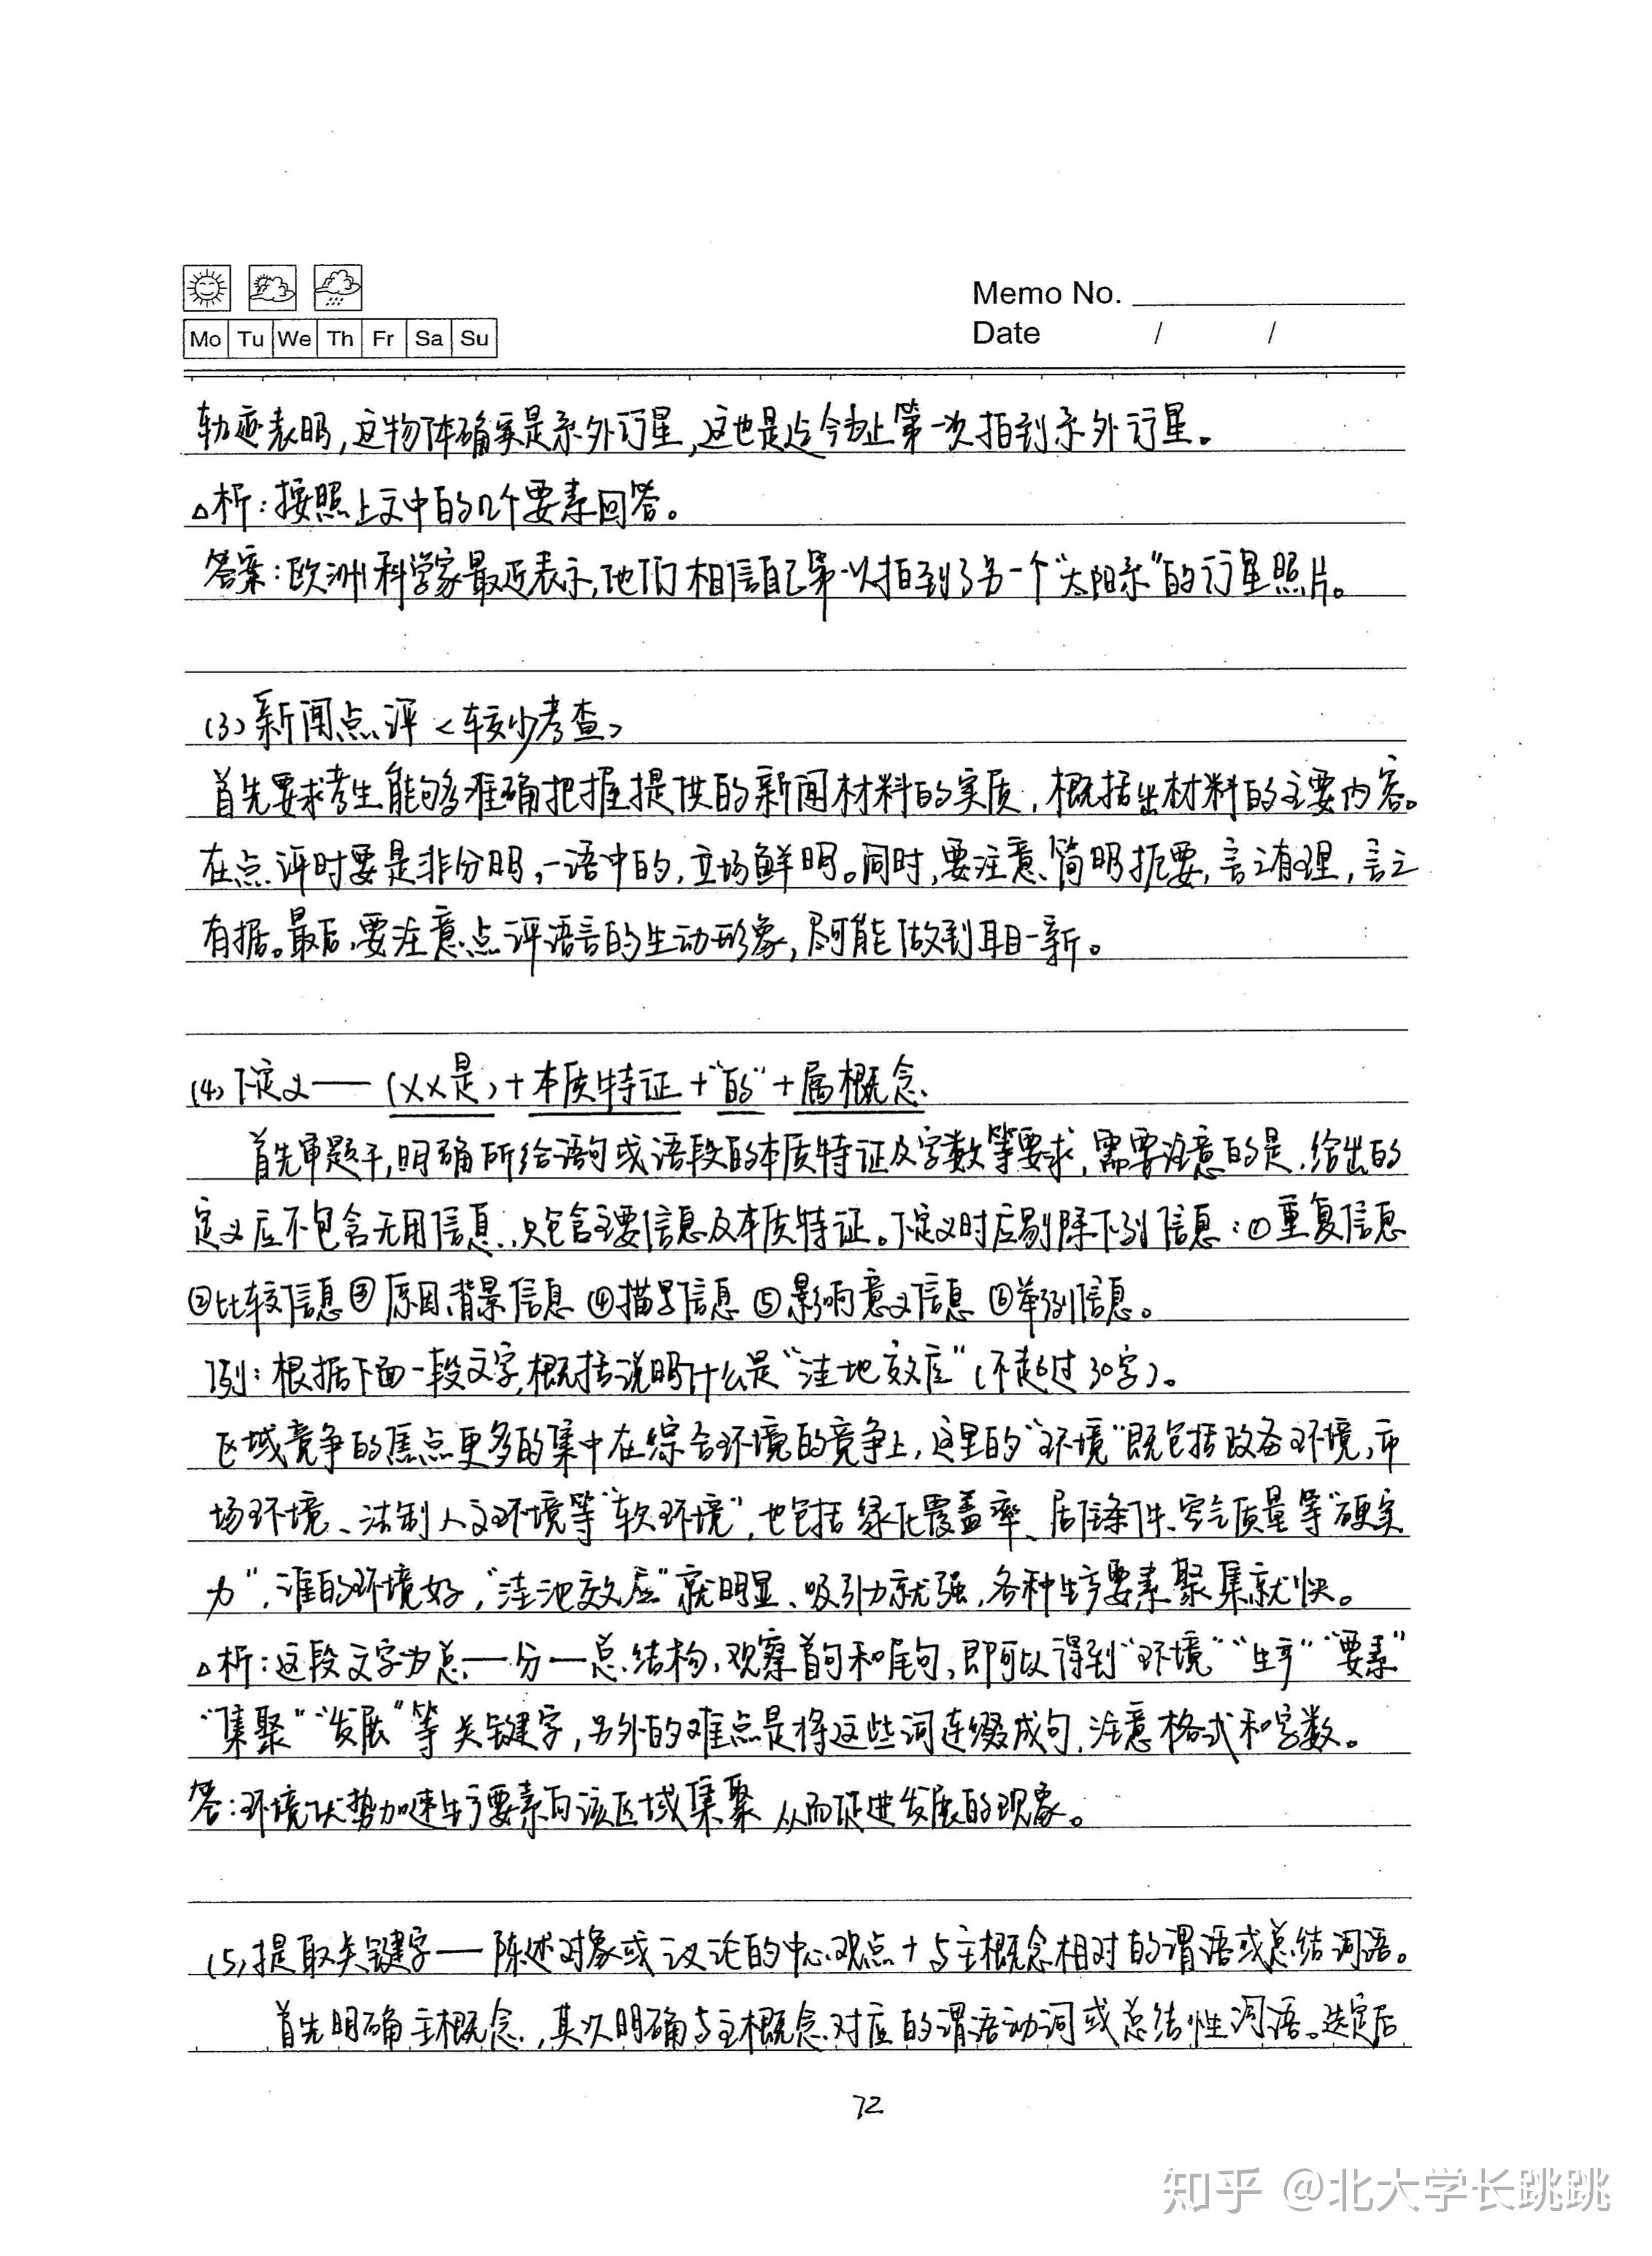 Memo No.
Mo Tu We Th Fr Sa Su
Date / /
轨迹表明，这物体确实是系外行星，这也是迄今为止第一次拍到系外行星。
△析：按照上文中的几个要素回答。
答案：欧洲科学家最近表示，他们相信自己第一次拍到了另一个“太阳系”的行星照片。
(3)新闻点评<较少考查>
首先要求考生能够准确把握提供的新闻材料的实质，概括出材料的主要内容。
在点评时要是非分明，一语中的，立场鲜明。同时，要注意简明扼要，言之有理，言之
有据。最后，要注意点评语言的生动形象，尽可能做到耳目一新。
(4)下定义——(××是)+本质特证+“的”+属概念
首先审题干，明确所给语句或语段的本质特证及字数等要求，需要注意的是，给出的
定义应不包含无用信息，只包含主要信息及本质特证。下定义时应剔除下列信息：①重复信息
②比较信息③原因、背景信息④描写信息⑤影响意义信息⑥举例信息。
例：根据下面一段文字，概括说明什么是“洼地效应”(不超过30字)。
区域竞争的焦点更多的集中在综合环境的竞争上，这里的“环境”既包括政务环境，市
场环境、法制人文环境等“软环境”，也包括绿化覆盖率、居住条件、空气质量等“硬实
力”，谁的环境好，“洼池效应”就明显、吸引力就强，各种生产要素聚集就快。
△析：这段文字为总—分—总结构，观察首句和尾句，即可以得到“环境”“生产”“要素”
“集聚”“发展”等关键字，另外的难点是将这些词连缀成句，注意格式和字数。
答：环境优势加速生产要素向该区域集聚从而促进发展的现象。
(5)提取关键字——陈述对象或议论的中心观点+与主概念相对的谓语或总结词语。
首先明确主概念，其次明确与主概念对应的谓语动词或总结性词语。选定后
72
知乎 @北大学长跳跳